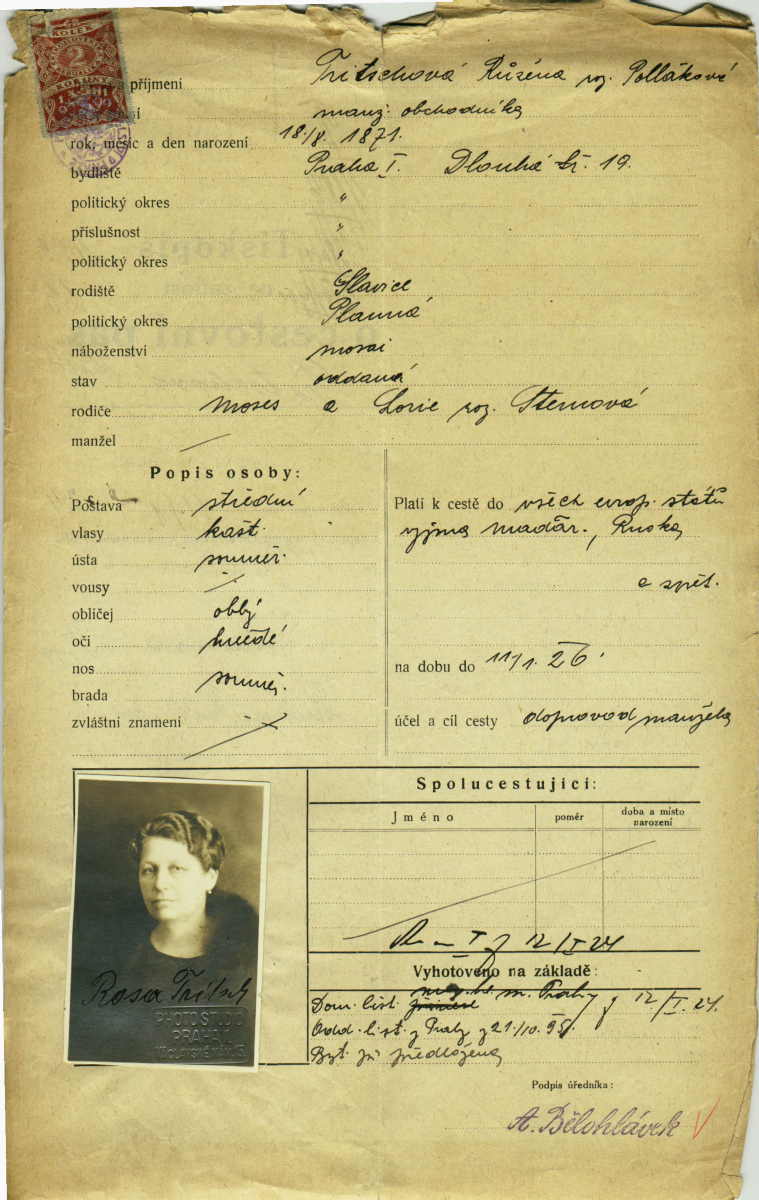 KOLEK
2
KORUNY
příjmení Fritschová Růžena roz. Polláková
manž. obchodníka
rok, měsíc a den narození 18./8. 1871.
bydliště Praha I. Dlouhá tř. 19.
politický okres "
příslušnost "
politický okres "
rodiště Slavice
politický okres Planná
náboženství mosai
stav oddaná
rodiče Moses a Lorie roz. Sternová
manžel —
Popis osoby:
Postava střední
vlasy kašt.
ústa souměr.
vousy ·/.
obličej oblý
oči hnědé
nos
souměr.
brada
zvláštní znamení
Platí k cestě do všech evrop. států
vyjma maďar., Ruska
a zpět.
na dobu do 11/1. 26.
účel a cíl cesty doprovod manžela
Spolucestující:
Jméno poměr doba a místo narození
12/I 24
Vyhotoveno na základě:
Dom. list. m. Prahy z 12/I. 24.
Odd. list. z Prahy z 21./10. 95
Byt. již předložena
Podpis úředníka:
A. Bělohlávek
Rosa Fritsch
PHOTO STUDIO
PRAHA